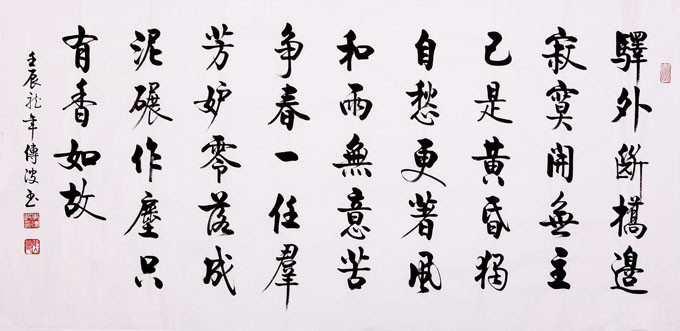 驛外斷橋邊
寂寞開無主
已是黃昏獨
自愁更著風
和雨無意苦
争春一任羣
芳妒零落成
泥碾作塵只
有香如故
壬辰龙年傅波书